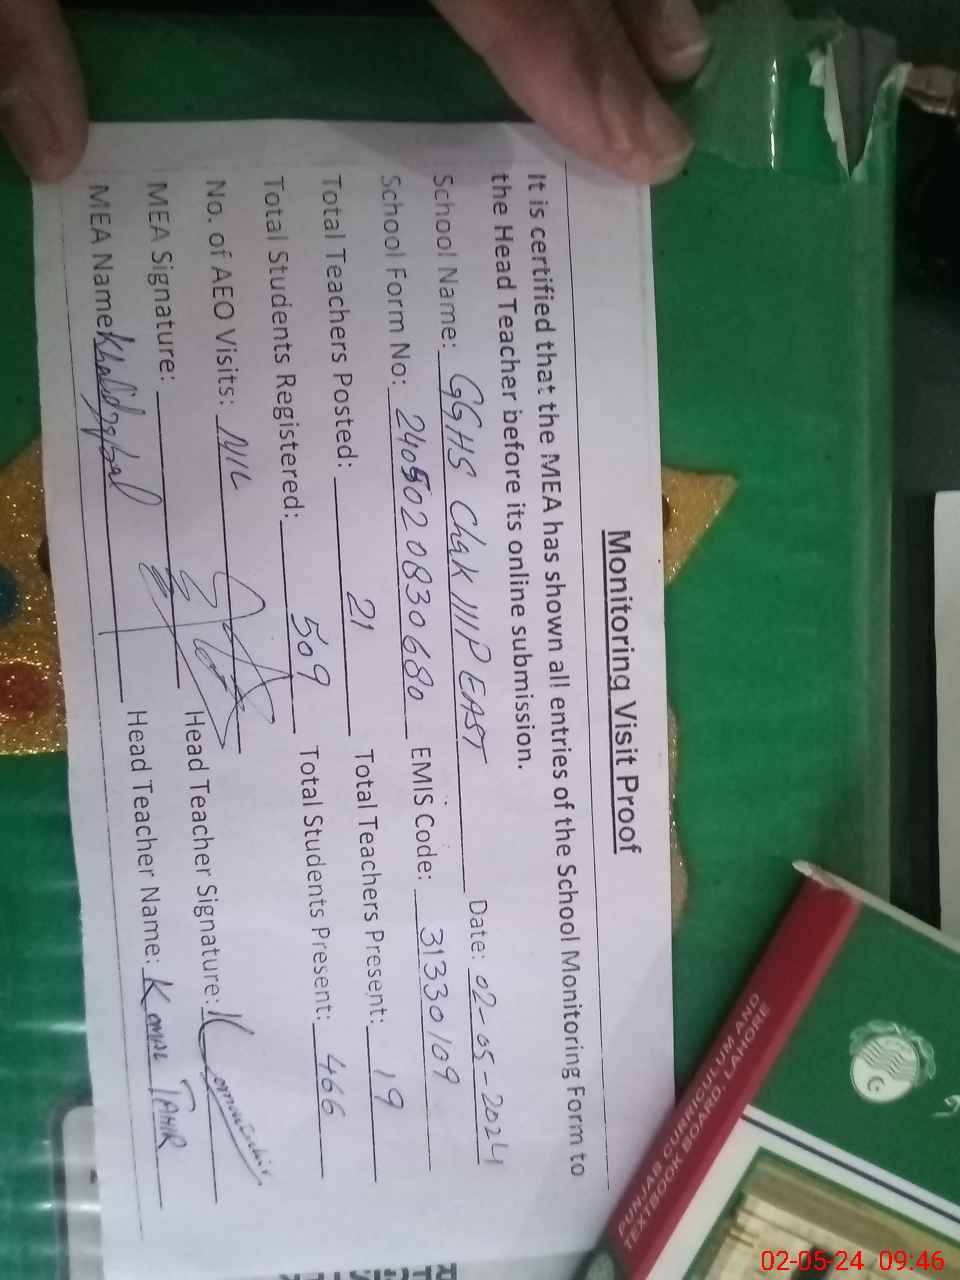 Monitoring Visit Proof
It is certified that the MEA has shown all entries of the School Monitoring Form to
the Head Teacher before its online submission.
School Name: GGHS Chak 111P EAST Date: 02-05-2024
School Form No: 240502 0830680 EMIS Code: 31330109
Total Teachers Posted: 21 Total Teachers Present: 19
Total Students Registered: 509 Total Students Present: 466
No. of AEO Visits: NIL
MEA Signature: Head Teacher Signature:
MEA Name Khalid Iqbal Head Teacher Name: Komal TAHIR
PUNJAB CURRICULUM AND
TEXTBOOK BOARD, LAHORE
02-05-24 09:46